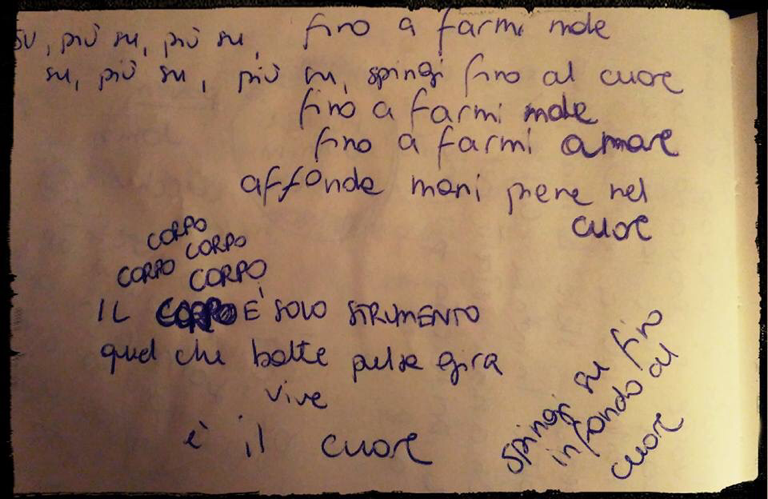 su, più su, più su, fino a farmi male
su, più su, più su, spingi fino al cuore
fino a farmi male
fino a farmi amare
affonda mani piene nel
cuore
CORPO
CORPO
CORPO CORPO
IL CORPO E' SOLO STRUMENTO
quel che batte pulsa gira
vive
è il cuore
spingi su fino
in fondo al
cuore